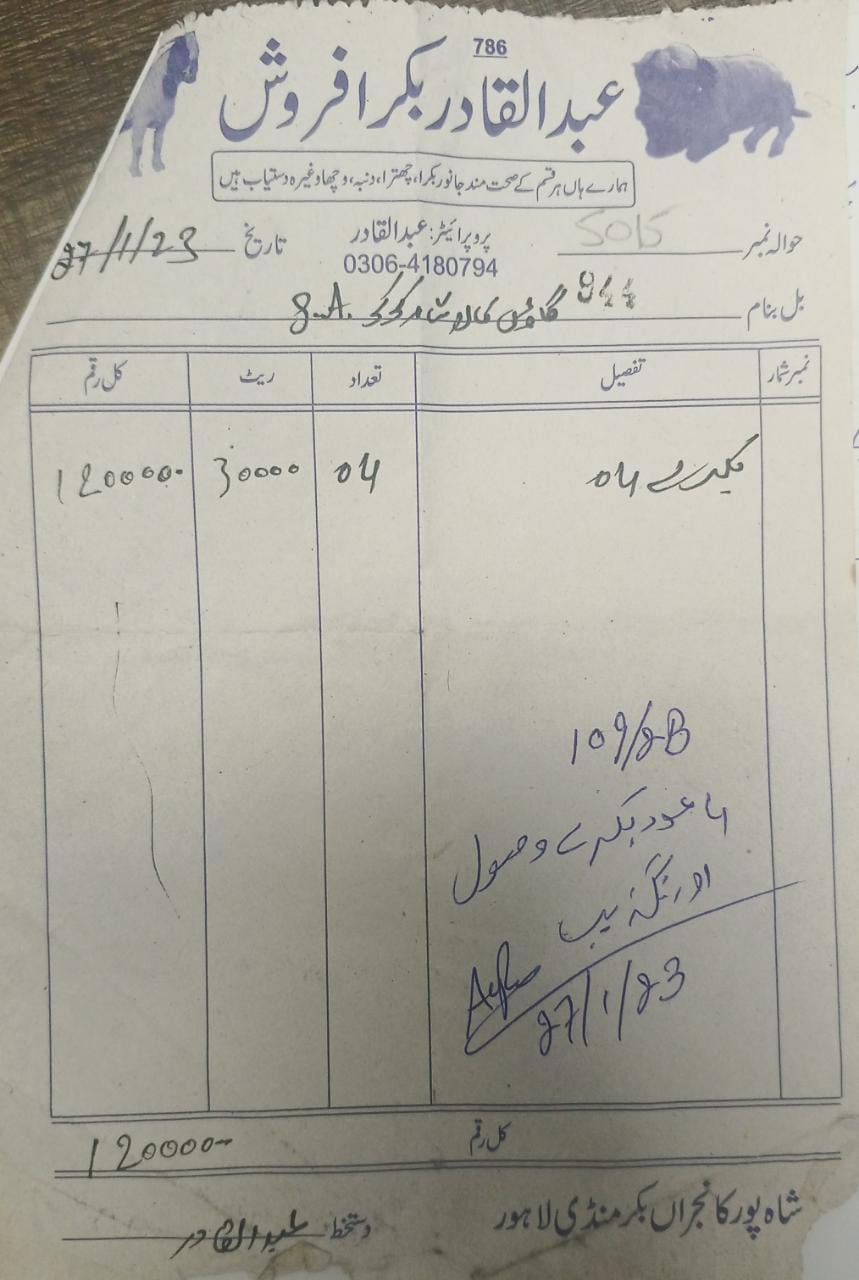 786
عبدالقادر بکرا فروش
ہمارے ہاں ہر قسم کے صحت مند جانور بکرا، چھترا، دنبہ، وچھا وغیرہ دستیاب ہیں
حوالہ نمبر
پروپرائیٹر: عبدالقادر
تاریخ 27/1/23
0306-4180794
بل بنام
نمبر شمار تفصیل تعداد ریٹ کل رقم
بکرے 04 04 30000 120000-
109/2B
4 عدد بکرے وصول
اورنگزیب
27/1/23
کل رقم 120000-
شاہ پور کانجراں بکر منڈی لاہور
دستخط عبدالقادر